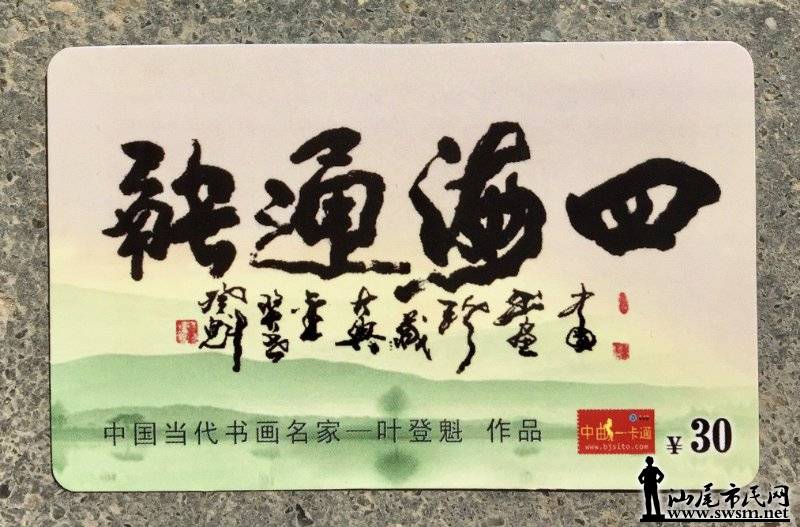 四海通融
中国当代书画名家—叶登魁 作品
中曲一卡通
www.bjsito.com
¥ 30
汕尾市民网
www.swsm.net